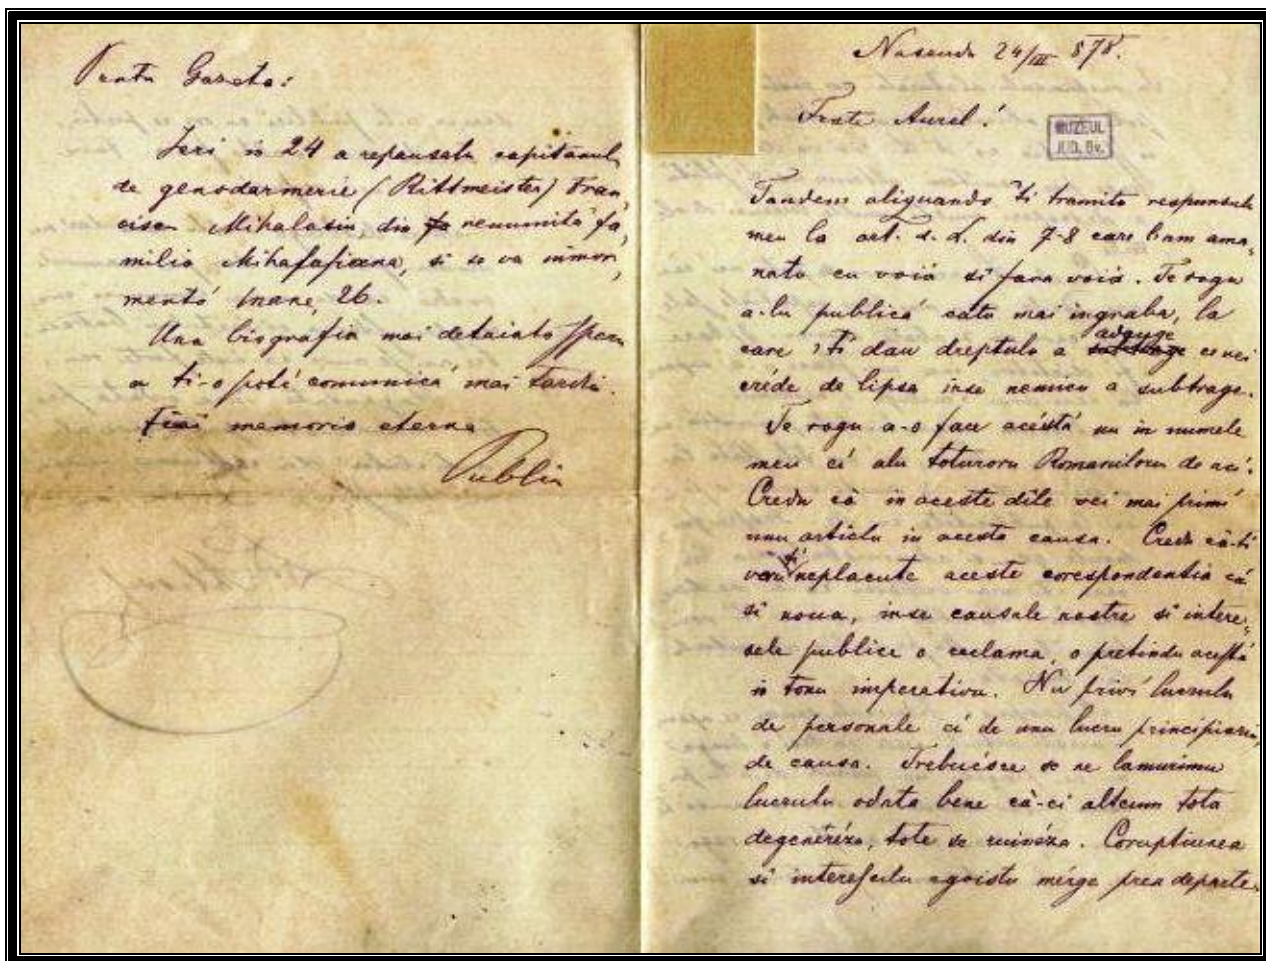 Pentu Gazeta:
Jeri in 24 a repausatu capitanul
de genodarmerie (Rittmeister) Fran,
ciscu Mihalasiu, din fa renumita fa,
milia Mihalasiana, si se va inmor,
mentá mane, 26.
Una biografia mai detaiata speru
a ti-o poté comunicá mai tardiu.
Fiai memoria eterna
Publiu
Nasaudu 24/III 878.
Frate Aurel!
MUZEUL
JUD. Bv.
Tandem aliquando ti tramitu responsulu
meu la art. d. L. din 7-8 care l'am ama,
natu cu voiá si fara voiá. Te rogu
a-lu publicá catu mai ingraba, la
care iti dau dreptulu a subtrage adauge ce vei
créde de lipsa inse nemicu a subtrage.
Te rogu a-o face acésta nu in numele
meu ci alu toturoru Romaniloru de aci.
Credu cà in aceste dile vei mai primi
unu articlu in acesta causa. Credu cà-ti
voru fi neplacute aceste corespondentia cà
si noua, inse causele nostre si intere,
sele publice o reclama, o pretindu acésta
in tonu imperativu. Nu privi lucrulu
de personale ci de unu lucru principiariu,
de causa. Trebuésce se ne lamurimu
lucrulu odata bene cà-ci altcum tota
degeneréza, tote se ruinéza. Coruptiunea
si interesulu egoistu mérge prea departe.